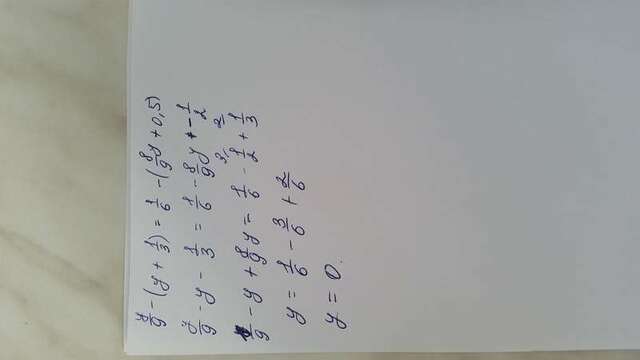 y/9 - (y + 1/3) = 1/6 - (8/9 y + 0,5)
y/9 - y - 1/3 = 1/6 - 8/9 y - 1/2
y/9 - y + 8/9 y = 1/6 - 1/2 + 1/3
y = 1/6 - 3/6 + 2/6
y = 0.